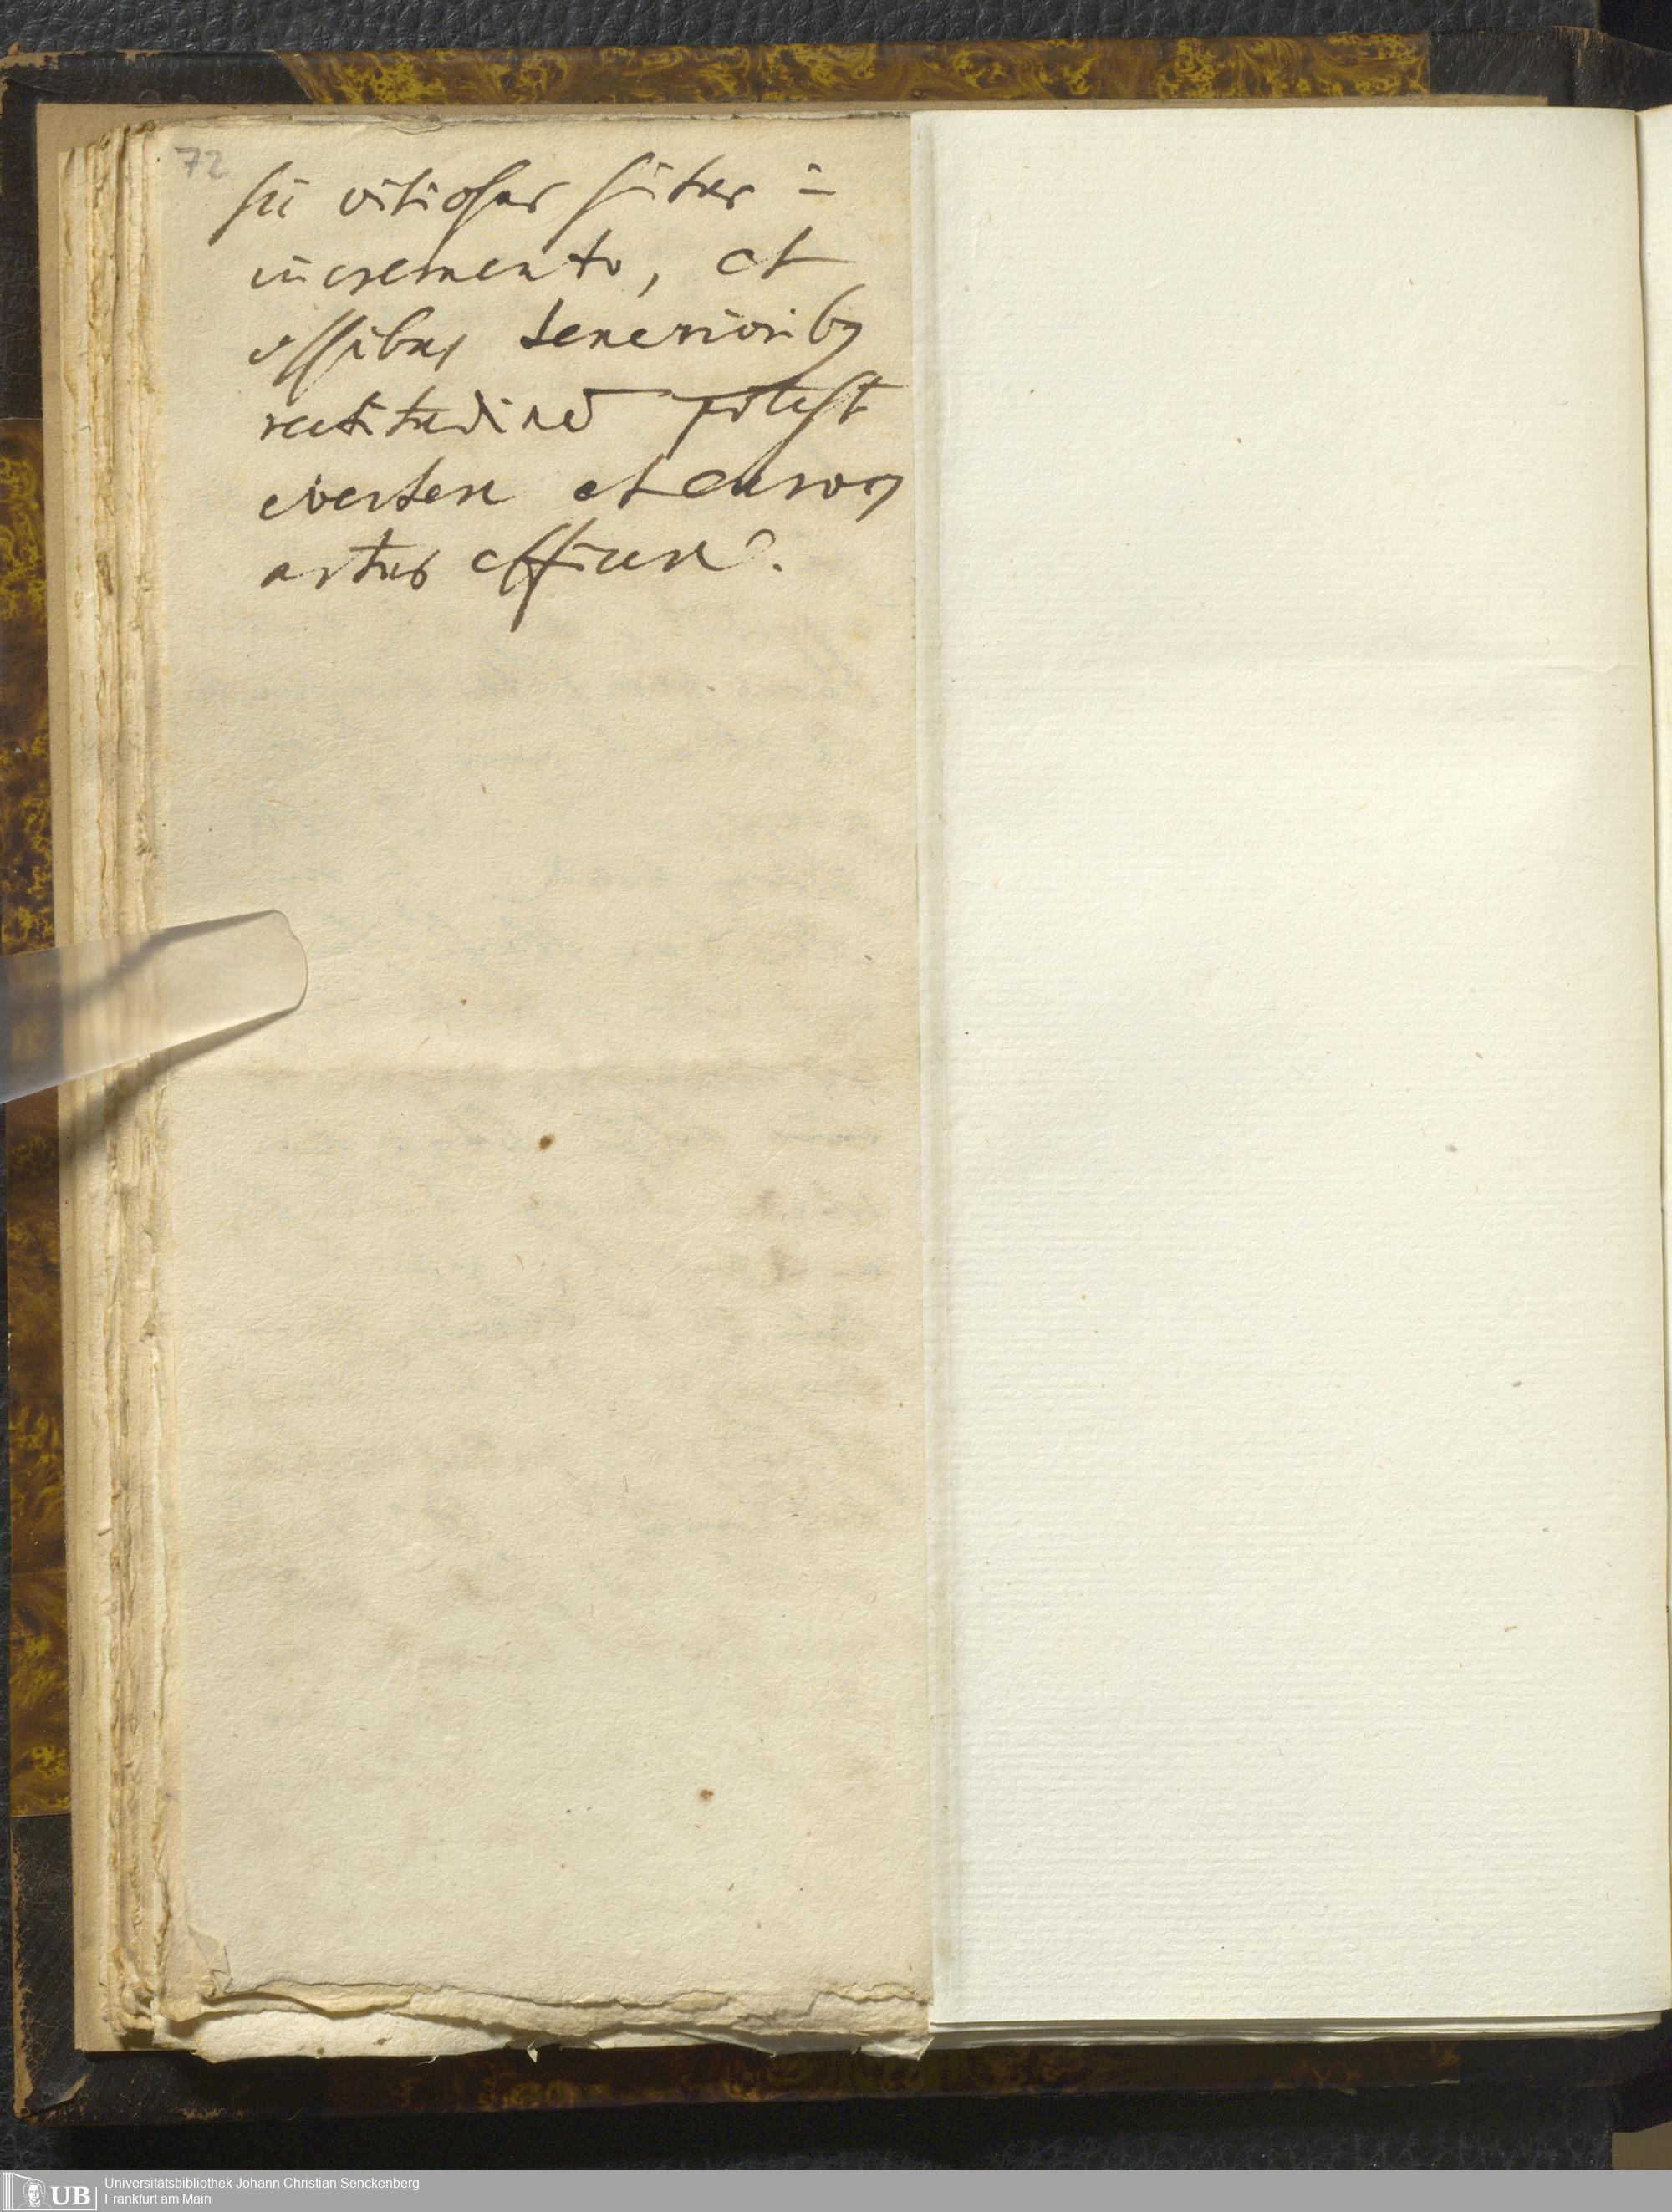 72
sui vitiosus situs in
incremento, et
ossibus teneriorib9
rectitudinē potest
evertere et curvos
artus efficere.
UB Universitätsbibliothek Johann Christian Senckenberg
Frankfurt am Main